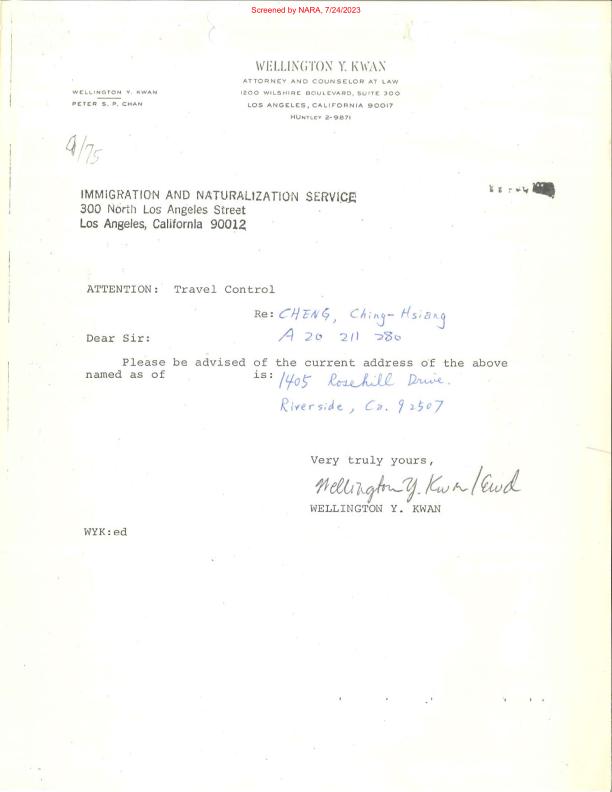 Screened by NARA, 7/24/2023
WELLINGTON Y. KWAN
ATTORNEY AND COUNSELOR AT LAW
1200 WILSHIRE BOULEVARD, SUITE 300
LOS ANGELES, CALIFORNIA 90017
HUNTLEY 2-9871
WELLINGTON Y. KWAN
PETER S. P. CHAN
9/75
IMMIGRATION AND NATURALIZATION SERVICE
300 North Los Angeles Street
Los Angeles, California 90012
ATTENTION: Travel Control
Re: CHENG, Ching-Hsiang
Dear Sir: A 20 211 280
Please be advised of the current address of the above
named as of is: 1405 Rosehill Drive.
Riverside, Ca. 92507
Very truly yours,
Wellington Y. Kwan/
WELLINGTON Y. KWAN
WYK:ed